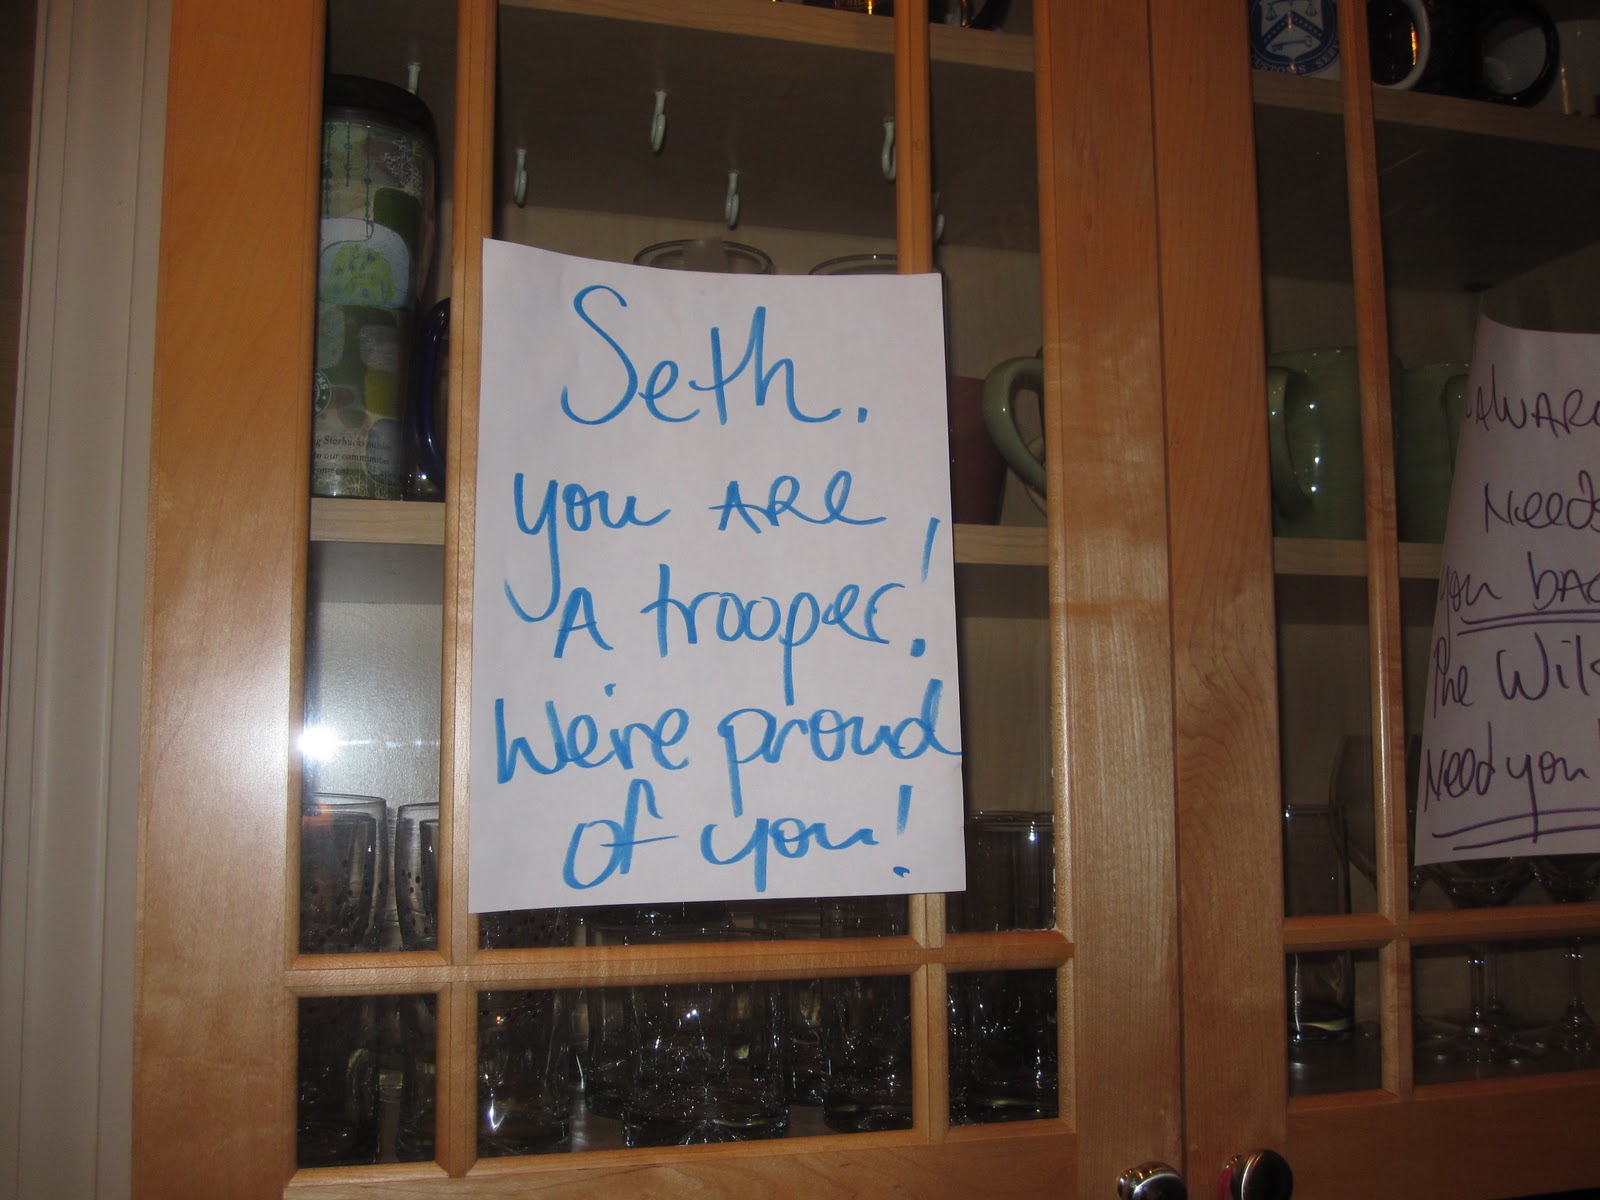 Seth.
you ARE
A trooper!
We're proud
of you!
Needs
you
the
Need you
Starbucks
to our communities